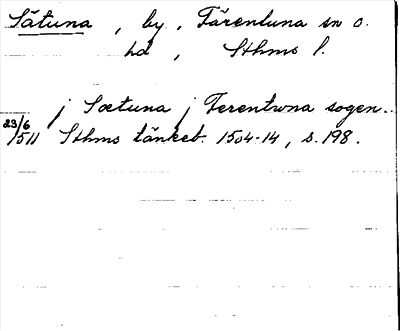 Sätuna, by, Färentuna sn o.
hd, Sthms l.
j Sætuna j Ferentwna sogen..
23/6 1511 Sthms tänkeb. 1504-14, s. 198.